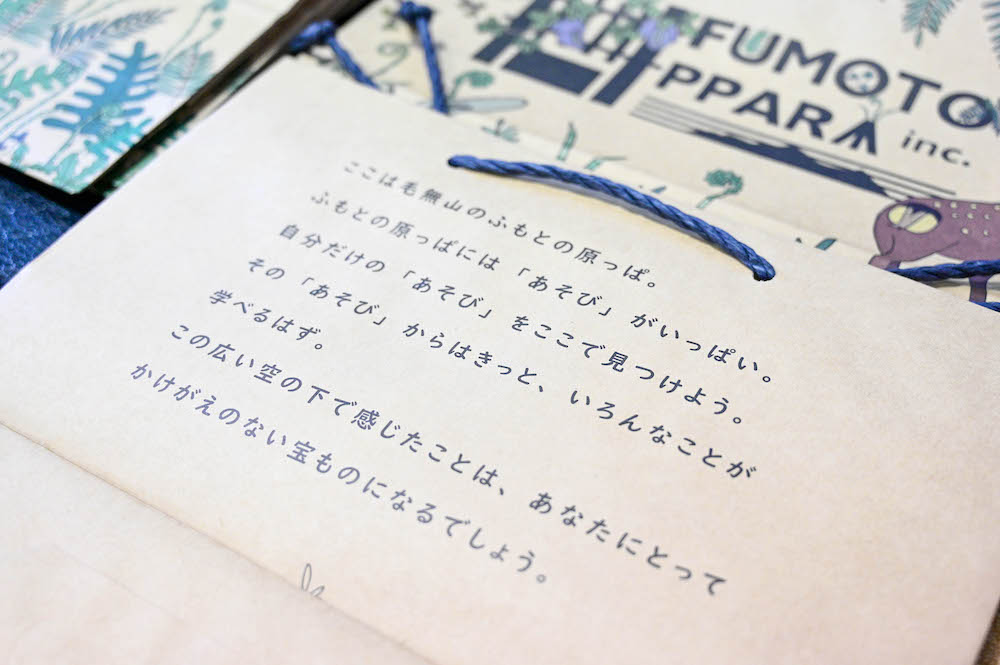 FUMOTO
PPARA inc.
ここは毛無山のふもとの原っぱ。
ふもとの原っぱには「あそび」がいっぱい。
自分だけの「あそび」をここで見つけよう。
その「あそび」からはきっと、いろんなことが
学べるはず。
この広い空の下で感じたことは、あなたにとって
かけがえのない宝ものになるでしょう。